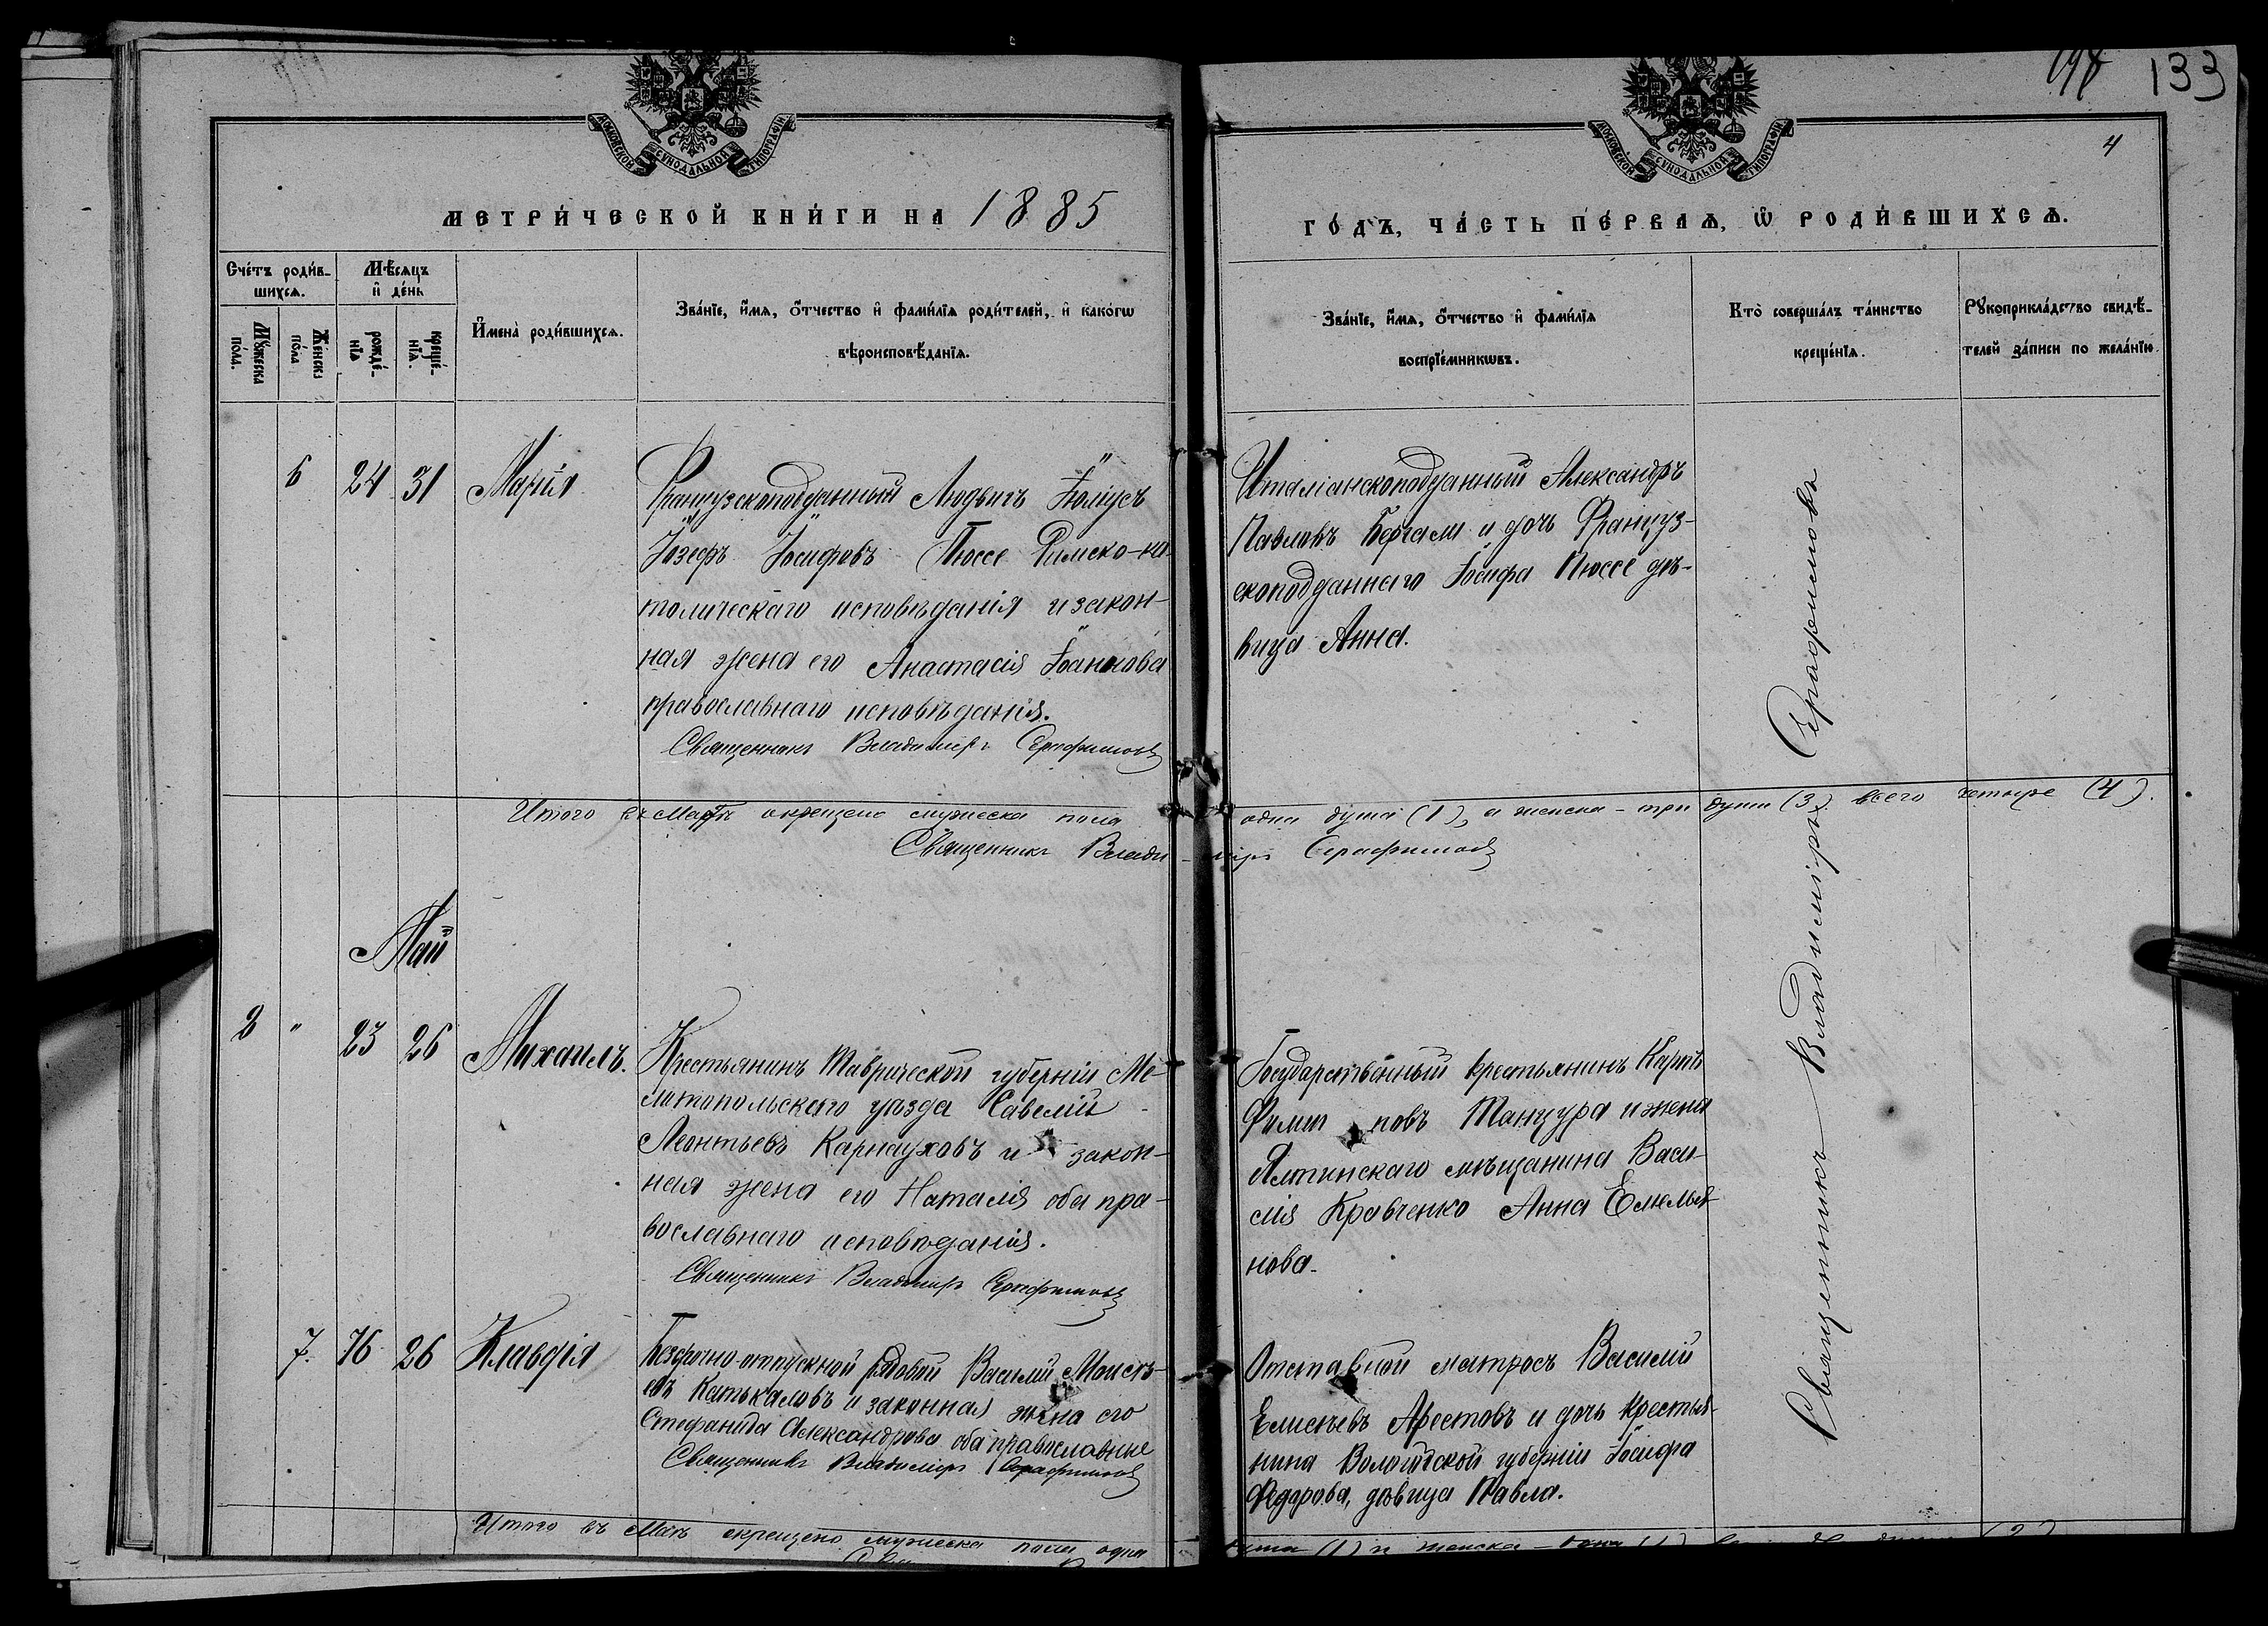 198 133
4
МОСКОВСКОЙ СѴНОДАЛЬНОЙ ТИПОГРАФІИ
МОСКОВСКОЙ СѴНОДАЛЬНОЙ ТИПОГРАФІИ
МЕТРИ́ЧЕСКОЙ КНИ́ГИ НА 1885
ГО́ДЪ, ЧА́СТЬ ПЕ́РВАѦ, Ѡ РОДИ́ВШИХСѦ.
Сче́тъ роди́в-
шихсѧ.
Мꙋ́жеска по́ла.
Же́нска по́ла
Мѣ́сѧцъ
и де́нь
рожде́-
нїѧ
креще́-
нїѧ.
И҆мена̀ роди́вшихсѧ.
Зва́нїе, и҆́мѧ, ѻ҆́тчество и҆ фами́лїѧ роди́телей, и҆ како́гѡ
вѣроисповѣ́данїѧ.
Зва́нїе, и҆́мѧ, ѻ҆́тчество и҆ фами́лїѧ
воспрїе́мникѡвъ.
Кто̀ соверша́лъ та́инство
креще́нїѧ.
Рꙋкоприкла́дство свидѣ́-
телей за́писи по жела́нїю.
6 24 31 Марія
Французскоподданный Людвигъ Юліусъ
Іозефъ Іосифовъ Пюссе Римско-ка-
толическаго исповѣданія и закон-
ная жена его Анастасія Іоаннова
православнаго исповѣданія.
Священникъ Владиміръ Серафимовъ
Италіанскоподданный Александръ
Павловъ Бергами и дочь Француз-
скоподданнаго Іосифа Пюссе дѣ-
вица Анна.
Итого въ Мартѣ окрещено мужеска пола одна душа (1), а женска - три души (3) всего четыре (4).
Священникъ Влади-міръ Серафимовъ
Май
2 " 23 26 Михаилъ.
Крестьянинъ Таврической губерніи Ме-
литопольскаго уѣзда Савелій
Леонтьевъ Карнауховъ и закон-
ная жена его Наталія оба пра-
вославнаго исповѣданія.
Священникъ Владиміръ Серафимовъ
Государственный крестьянинъ Карпъ
Филип повъ Танцура и жена
Ялтинскаго мѣщанина Васи-
лія Кравченко Анна Емелья-
нова.
7. 16 26 Клавдія
Безсрочно-отпускной рядовой Василій Моисѣ-
евъ Катькаловъ и законная жена его
Стефанида Александрова оба православные
Священникъ Владиміръ Серафимовъ
Отставной матросъ Василій
Елисѣевъ Арестовъ и дочь крестья-
нина Вологодской губерніи Іосифа
Федорова, дѣвица Павла.
Священникъ Владиміръ Серафимовъ
Итого въ Маѣ окрещено мужеска пола одна душа (1) и женска - одна (1)